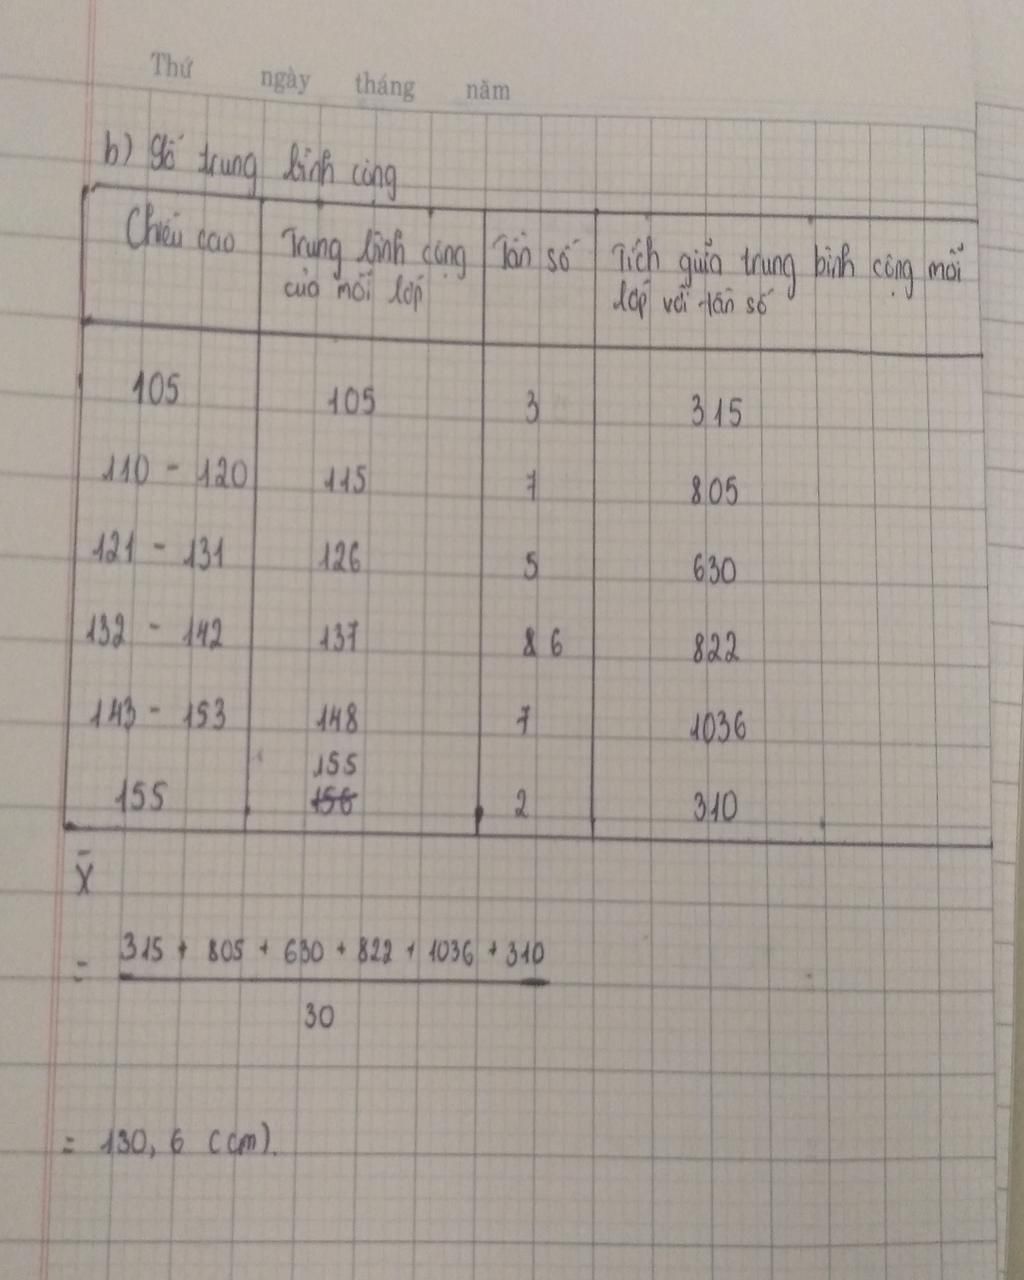 Thứ ngày tháng năm
b) Số trung bình cộng
Chiều cao Trung bình cộng của mỗi lớp Tần số Tích giữa trung bình cộng mỗi lớp với tần số
105 105 3 315
110 - 120 115 7 805
121 - 131 126 5 630
132 - 142 137 8 6 822
143 - 153 148 7 1036
155
155 156 2 310
X̄
= 315 + 805 + 630 + 822 + 1036 + 310
30
= 130,6 (cm).